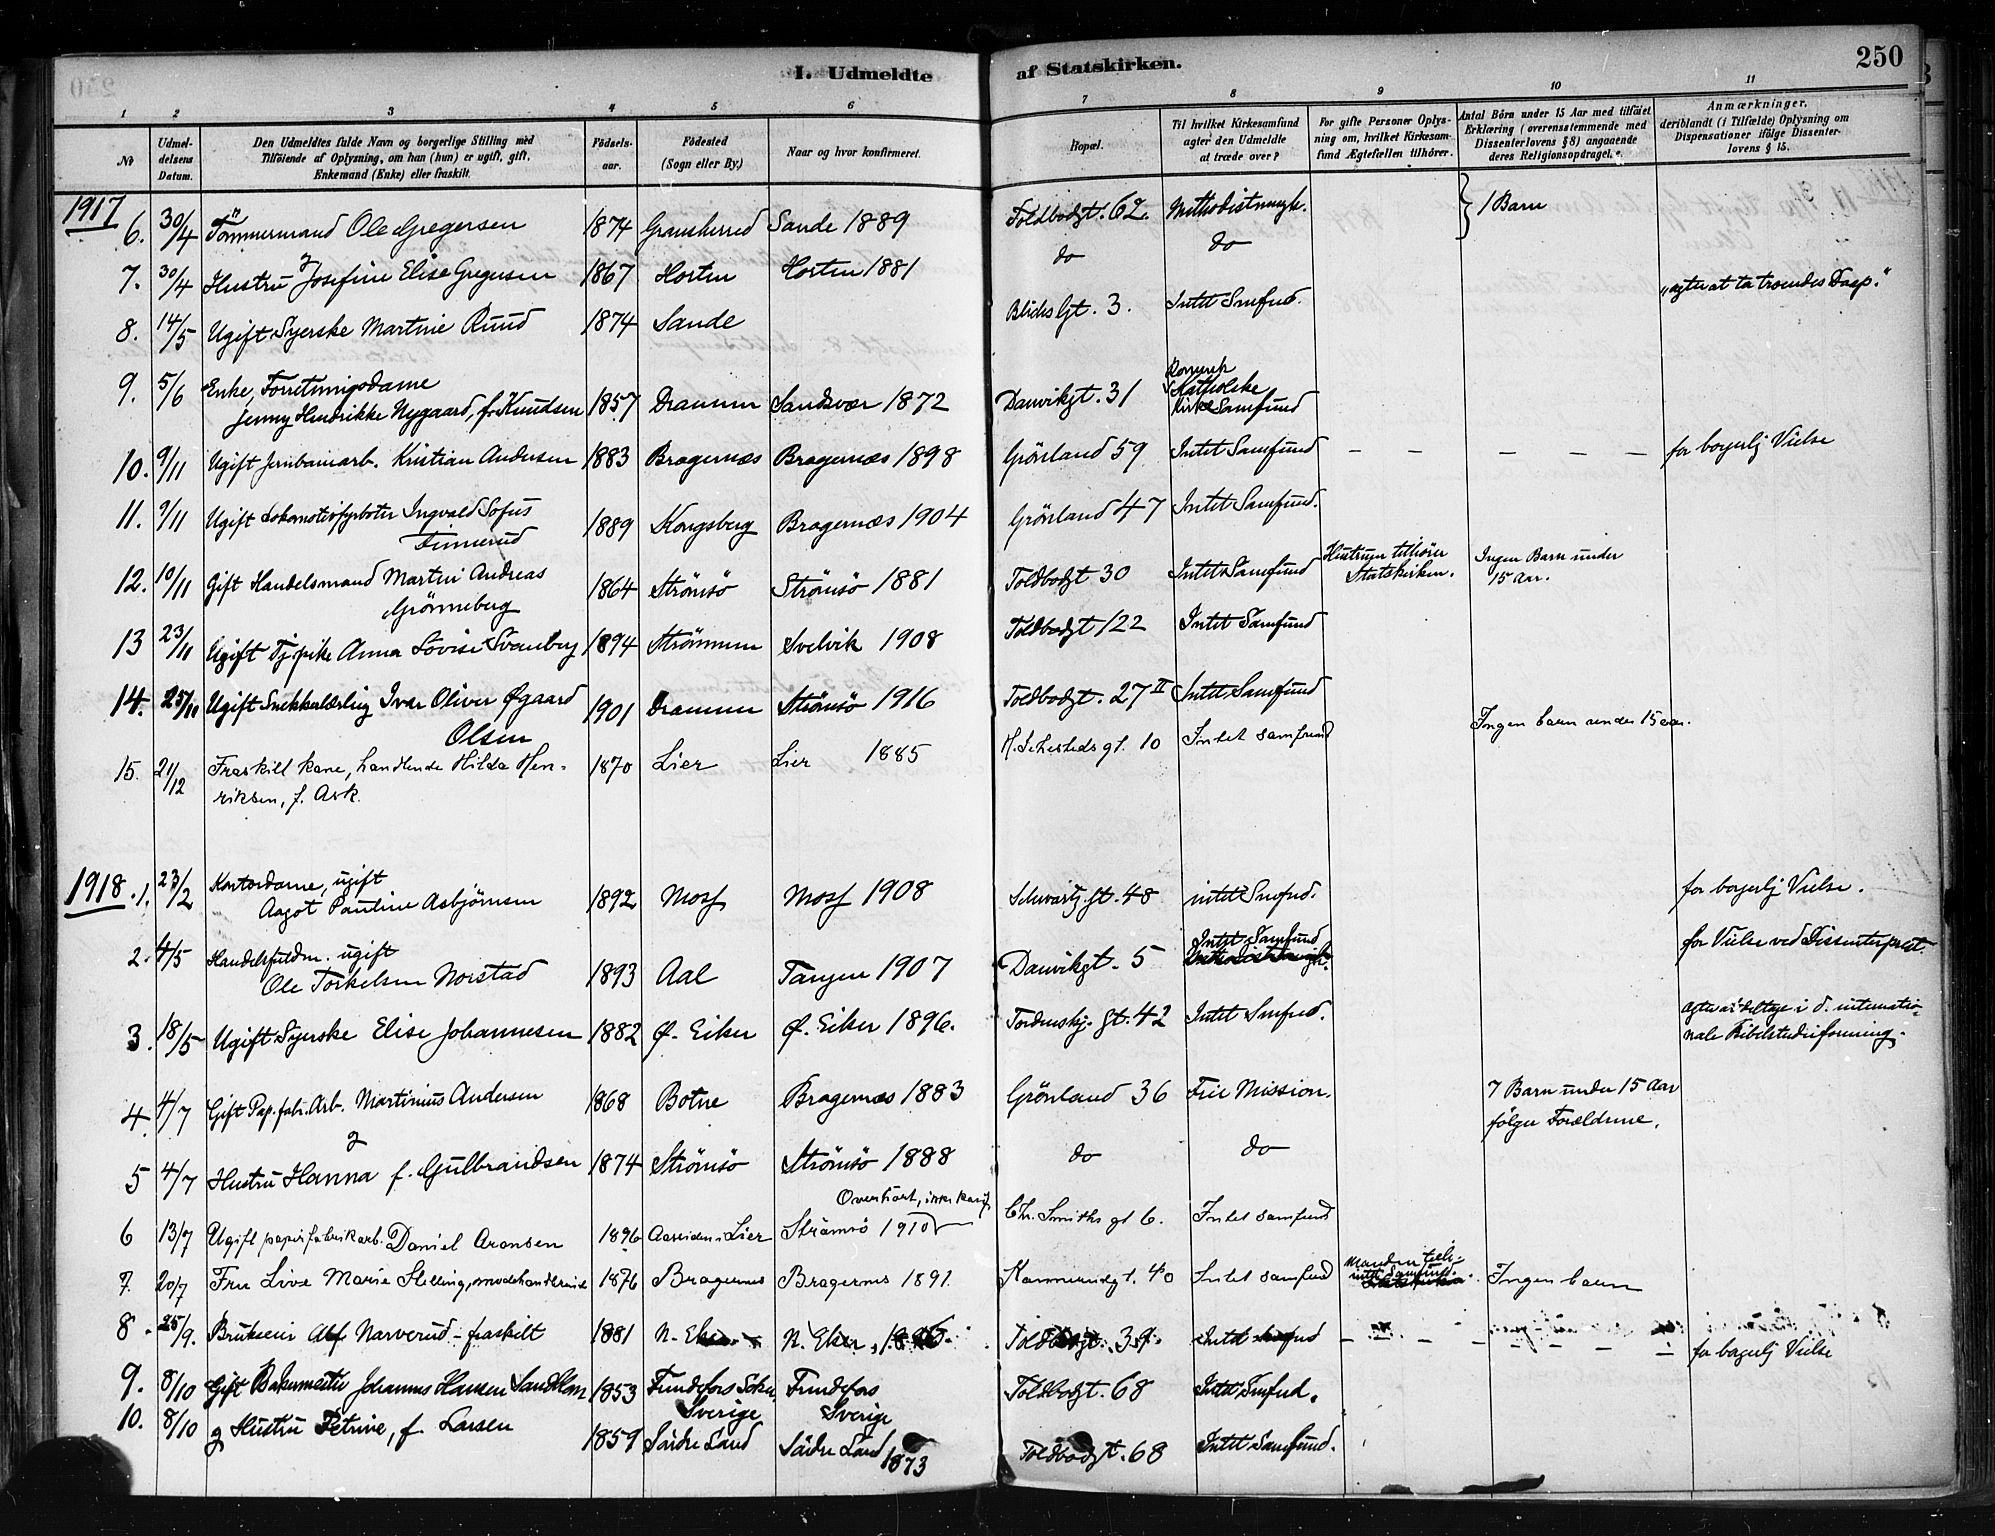 I. Udmeldte af Statskirken. 250
1 2 3 4 5 6 7 8 9 10 11
№ Udmeldelsens Datum. Den Udmeldtes fulde Navn og borgerlige Stilling med Tilføiende af Oplysning, om han (hun) er ugift, gift, Enkemand (Enke) eller fraskilt. Fødselsaar. Fødested (Sogn eller By.) Naar og hvor konfirmeret. Bopæl. Til hvilket Kirkesamfund agter den Udmeldte at træde over? For gifte Personer Oplysning om, hvilket Kirkesamfund Ægtefællen tilhører. Antal Börn under 15 Aar med tilföiet Erklæring (overensstemmende med Dissenterlovens § 8) angaaende deres Religionsopdragelse. Anmærkninger, deriblandt (i Tilfælde) Oplysning om Dispensationer ifölge Dissenterlovens § 15.
1917
6. 30/4 Tömmermand Ole Gregersen 1874 Gransherred Sande 1889 Toldbodgt. 62. Methodistmengh. 1 Barn
7. 30/4 og Hustru Josefine Elise Gregersen 1867 Horten Horten 1881 do do
8. 14/5 Ugift Syerske Martine Ruud 1874 Sande Blichs Gt. 3. Intet Smfud. "agter at ta troendes Daap."
9. 5/6 Enke, Forretningsdame
Jenny Hendrikke Nygaard, f. Knudsen 1857 Drammen Sandsvær 1872 Danvikgt. 31 Romersk Katholske Kirke Samfund
10. 9/11 Ugift Jernbanearb. Kristian Andersen 1883 Bragernæs Bragernæs 1898 Grönland 59 Intet Samfund — — — — — for borgerlj Vielse
11. 9/11 Ugift Lokomotivfyrböter Ingvald Sofus
Finnerud 1889 Kongsberg Bragernæs 1904 Grönland 47 Intet Samfund.
12. 10/11 Gift Handelsmand Martin Andreas
Grönneberg 1864 Strömsö Strömsö 1881 Toldbodgt 30 Intet Samfund Hustruen tilhörer Statskirken. Ingen Barn under 15 Aar.
13 23/11 Ugift Tj.pike Anna Lovise Svanberg 1894 Strömmen Svelvik 1908 Toldbodgt 122 Intet Samfund
14. 25/11 Ugift Snekkerlærling Ivar Oliver Øgaard
Olsen 1901 Drammen Strömsö 1916 Toldbodgt. 27 II Intet Samfund
15. 21/12 Fraskilt kone, handlende Hilda Henriksen, f. Ask. 1870 Lier Lier 1885 H. Sehesteds gt. 10 Intet samfund Ingen barn under 15 aar.
1918
1. 23/2 Kontordame, ugift
Aagot Pauline Asbjörnsen 1892 Moss Moss 1908 Schwartz gt. 48 intet Smfud. for borgerlj Vielse.
2. 4/5 Handelsfuldm. ugift
Ole Torkelsen Norstad 1893 Aal Tangen 1907 Danvikgt. 5 Intet Samfund for Vielse ved Dissenterprest.
3. 18/5 Ugift Syerske Elise Johannesen 1882 Ø. Eiker Ø. Eiker 1896. Tordenskj. gt. 42 Intet Smfud. agter at deltage i d. internationale Bibelstudieforening.
4. 4/7 Gift Pap.fabr. Arb. Martinius Andersen 1868 Botne Bragernæs 1883 Grönland 36 Frie Mission. 7 Barn under 15 Aar fölger Forældrene.
5 4/7 og Hustru Hanna f. Gulbrandsen 1874 Strömsö Strömsö 1888 do do
6 13/7 Ugift papirfabrikarb. Daniel Aronsen 1896 Aaseiden i Lier Strömsö 1910 Overhört, ikke konf. Chr. Smiths gt 6. Intet samfund
7. 20/7 Fru Live Marie Stilling, modehandlerinde 1876 Bragernes Bragernes 1891. Kammerudgt. 40 Intet samfund Manden tilh. intet Samfund. Ingen barn
8. 25/9. Brukseier Alf Narverud - fraskilt 1881 N. Eker N. Eker, Toldbodgt. 39. Intet Smfud — — — — — for borgerlj Vielse
9. 8/10 Gift Bakermester Johannes Hansen Sandblom 1853 Sverige Sverige Toldbodgt. 68 Intet Smfud.
10. 8/10 og Hustru Petrine, f. Larsen 1859 Söndre Land Söndre Land 1873 Toldbodgt. 68 Intet Samfund.